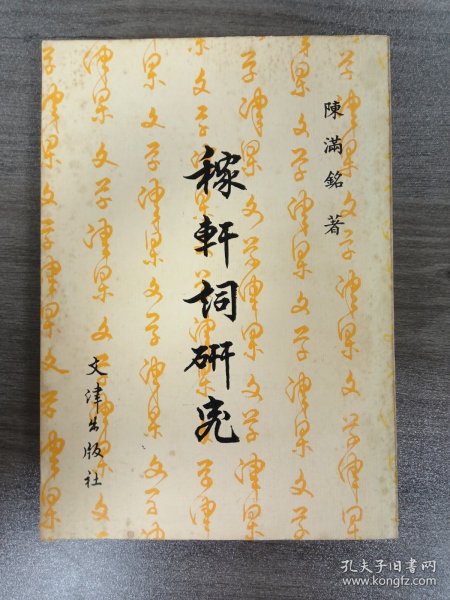 陳滿銘 著
稼軒詞研究
文津出版社
孔夫子旧书网
www.kongfz.com